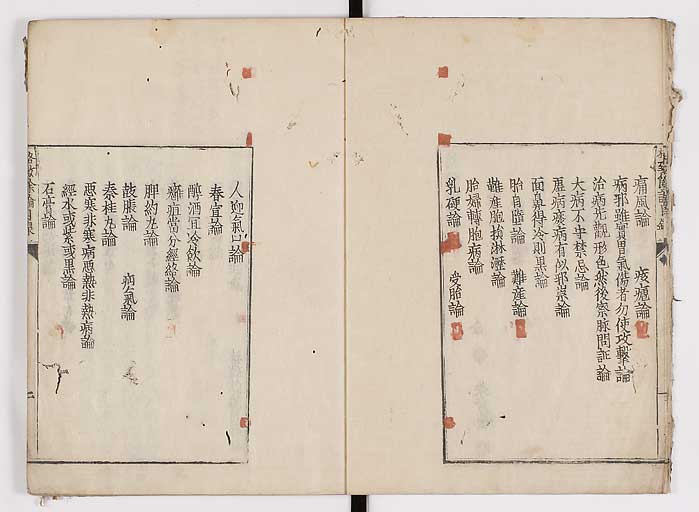 痛風論　痎瘧論
病邪雖實胃氣傷者勿使攻擊論
治病先觀形色然後察脉問証論
大病不守禁忌論
虛病痰病有似邪祟論
面鼻得冷則黒論
胎自墮論　難産論
難産胞損淋瀝論
胎婦轉胞病論
乳硬論　受胎論
人迎氣口論
春宣論
醇酒宜冷飲論
癰疽當分經絡論
脾約丸論
鼓脹論　疝氣論
秦桂丸論
惡寒非寒病惡熱非熱病論
經水或紫或黒論
石膏論
格致餘論目錄
二